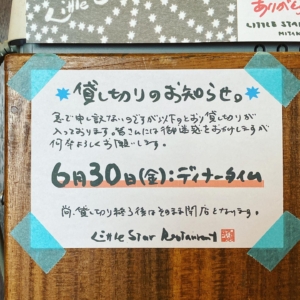 Little
ありがと
LITTLE STAR
MITAKA
貸し切りのお知らせ。
急で申し訳ないのですが以下のとおり貸し切りが
入っております。皆さんには御迷惑をおかけしますが
何卒よろしくお願いします。
6月30日(金):ディナータイム
尚、貸し切り終了後はそのまま閉店となります。
Little Star Restaurant